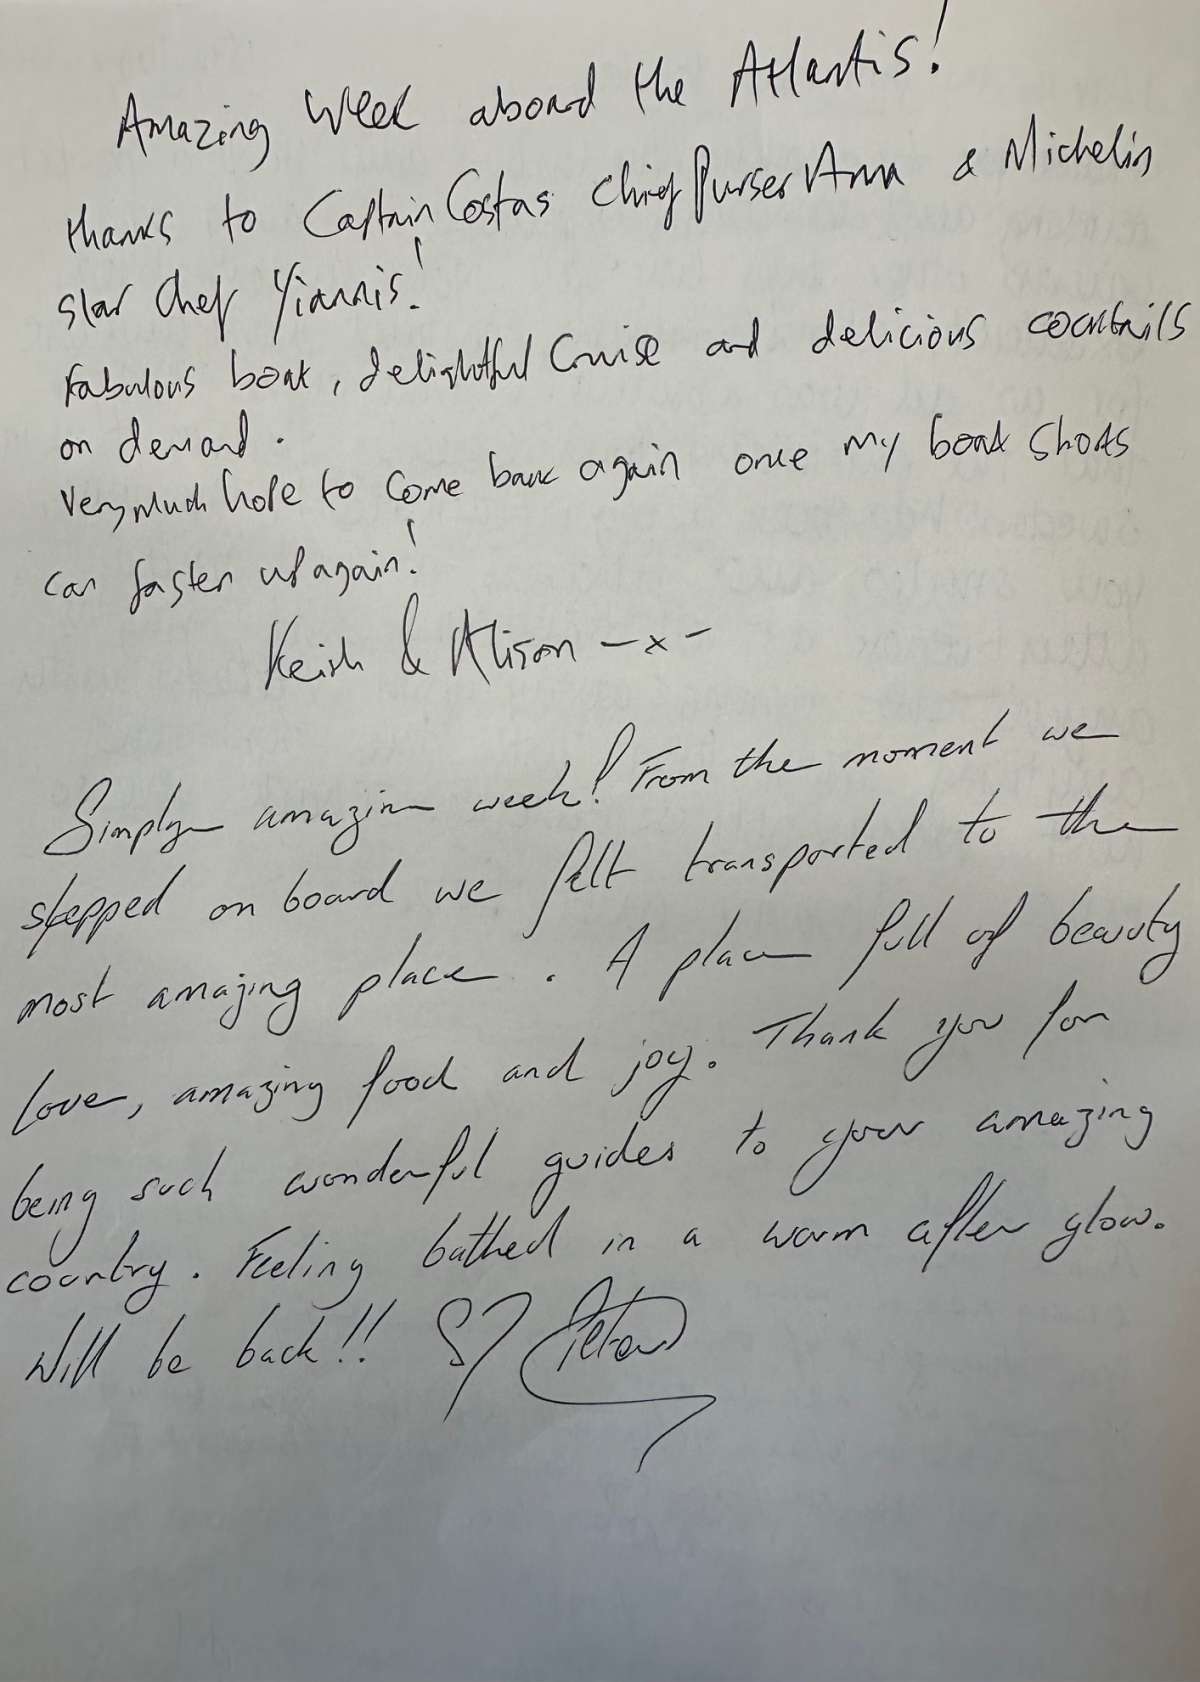 Amazing Week aboard the Atlantis!
thanks to Captain Costas Chief Purser Anna & Michelin
star Chef Yiannis!
Fabulous boat, delightful Cruise and delicious cocktails
on demand.
Very much hope to Come back again once my boat shorts
can fasten up again!
Keith & Alison -x-
Simply amazing week! From the moment we
stepped on board we felt transported to the
most amazing place. A place full of beauty
Love, amazing food and joy. Thank you for
being such wonderful guides to your amazing
country. Feeling bathed in a warm after glow.
Will be back!!